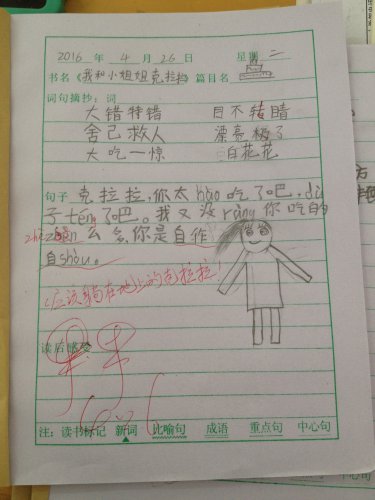 2016 年 4 月 26 日 星期 二
书名《我和小姐姐克拉拉》篇目名
词句摘抄：词
大错特错 目不转睛
舍己救人 漂亮极了
大吃一惊 白花花
句子 克拉拉，你太hǎo吃了吧，dù
子téng了吧。我又没ràng你吃的
zhè么多，你是自作
自shòu。
（应该躺在地上的克拉拉！
读后感受
注：读书标记 新词 比喻句 成语 重点句 中心句